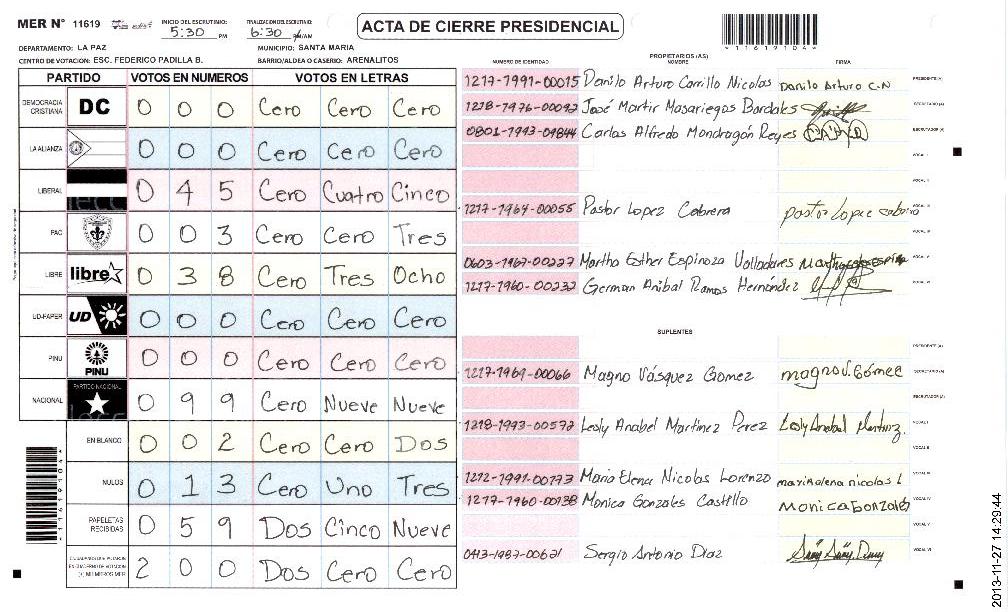 MER N° 11619 INICIO DEL ESCRUTINIO: 5:30 PM FINALIZACION DEL ESCRUTINIO: 6:30 PM/AM ACTA DE CIERRE PRESIDENCIAL
*11619104*
DEPARTAMENTO: LA PAZ MUNICIPIO: SANTA MARIA
CENTRO DE VOTACION: ESC. FEDERICO PADILLA B. BARRIO/ALDEA O CASERIO: ARENALITOS
PARTIDO VOTOS EN NUMEROS VOTOS EN LETRAS
DEMOCRACIA CRISTIANA DC 0 0 0 Cero Cero Cero
LA ALIANZA 0 0 0 Cero Cero Cero
LIBERAL 0 4 5 Cero Cuatro Cinco
PAC 0 0 3 Cero Cero Tres
LIBRE libre 0 3 8 Cero Tres Ocho
UD-FAPER UD 0 0 0 Cero Cero Cero
PINU PINU 0 0 0 Cero Cero Cero
NACIONAL PARTIDO NACIONAL 0 9 9 Cero Nueve Nueve
EN BLANCO 0 0 2 Cero Cero Dos
NULOS 0 1 3 Cero Uno Tres
PAPELETAS RECIBIDAS 0 5 9 Dos Cinco Nueve
CIUDADANOS QUE VOTARON EN CUADERNO DE VOTACION (+) MIEMBROS MER 2 0 0 Dos Cero Cero
PROPIETARIOS (AS)
NUMERO DE IDENTIDAD NOMBRE FIRMA
1217-1991-00015 Danilo Arturo Carrillo Nicolas Danilo Arturo C.N PRESIDENTE (A)
1218-1976-00092 José Martir Masariegos Bardales SECRETARIO (A)
0801-1993-09844 Carlos Alfredo Mondragón Reyes ESCRUTADOR (A)
VOCAL I
VOCAL II
1217-1964-00055 Pastor Lopez Cabrera pastor Lopez cabrera VOCAL III
VOCAL IV
0603-1967-00227 Martha Esther Espinoza Valladares VOCAL V
1217-1960-00232 German Anibal Ramos Hernandez VOCAL VI
SUPLENTES
PRESIDENTE (A)
1217-1969-00066 Magno Vásquez Gomez magno V. Gómez SECRETARIO (A)
ESCRUTADOR (A)
1218-1993-00572 Lesly Anabel Martinez Perez Lesly Anabel Martinez. VOCAL I
VOCAL II
1212-1991-00173 Maria Elena Nicolas Lorenzo maria elena nicolas L VOCAL III
1217-1960-00138 Monica Gonzales Castillo Monica Gonzales VOCAL IV
VOCAL V
0413-1987-00621 Sergio Antonio Diaz VOCAL VI
*11619104*
2013-11-27 14:29:44